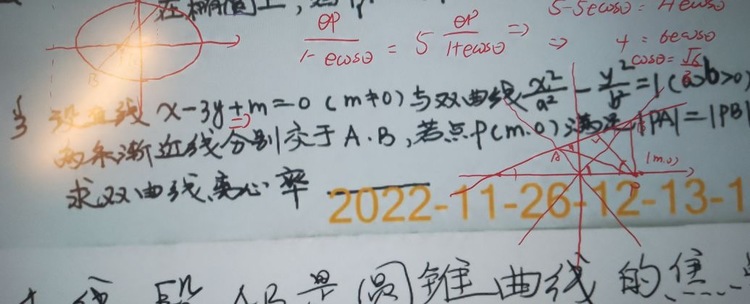 5-5ecosθ = 4ecosθ
ep/1-ecosθ = 5 ep/1+ecosθ ⇒ ⇒ 4 = 6ecosθ
cosθ =
3 设直线 x-3y+m=0 (m≠0) 与双曲线 x²/a² - y²/b² = 1 (a>b>0)
两条渐近线分别交于 A.B, 若点 P(m.0) 满足 |PA|=|PB|
A
(m.0)
求双曲线离心率
2022-11-26-12-13-1
线段 AB 是圆锥曲线的焦